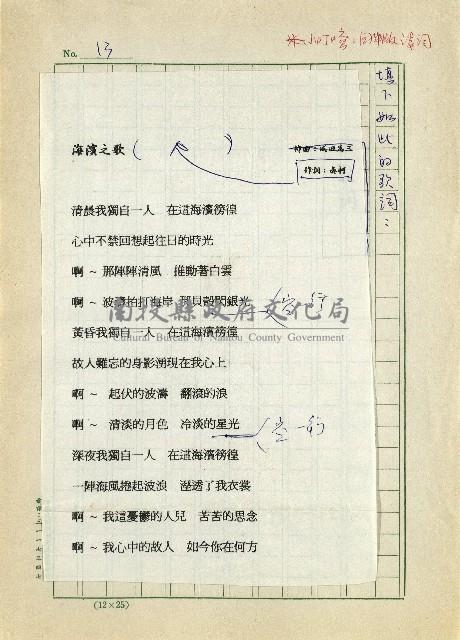 No. 13
填下如此的歌詞：
海濱之歌 (　　　)
作詞：呂柯
清晨我獨自一人　在這海濱徬徨
心中不禁回想起往日的時光
啊～那陣陣清風　推動著白雲
啊～波濤拍打海岸　那貝殼閃銀光
黃昏我獨自一人　在這海濱徬徨
故人難忘的身影湧現在我心上
啊～　起伏的波濤　翻滾的浪
啊～　清淡的月色　冷淡的星光
(空一行
深夜我獨自一人　在這海濱徬徨
一陣海風捲起波浪　溼透了我衣裳
啊～我這憂鬱的人兒　苦苦的思念
啊～我心中的故人　如今你在何方
南投縣政府文化局
Cultural Bureau of Nantou County Government
(12×25)